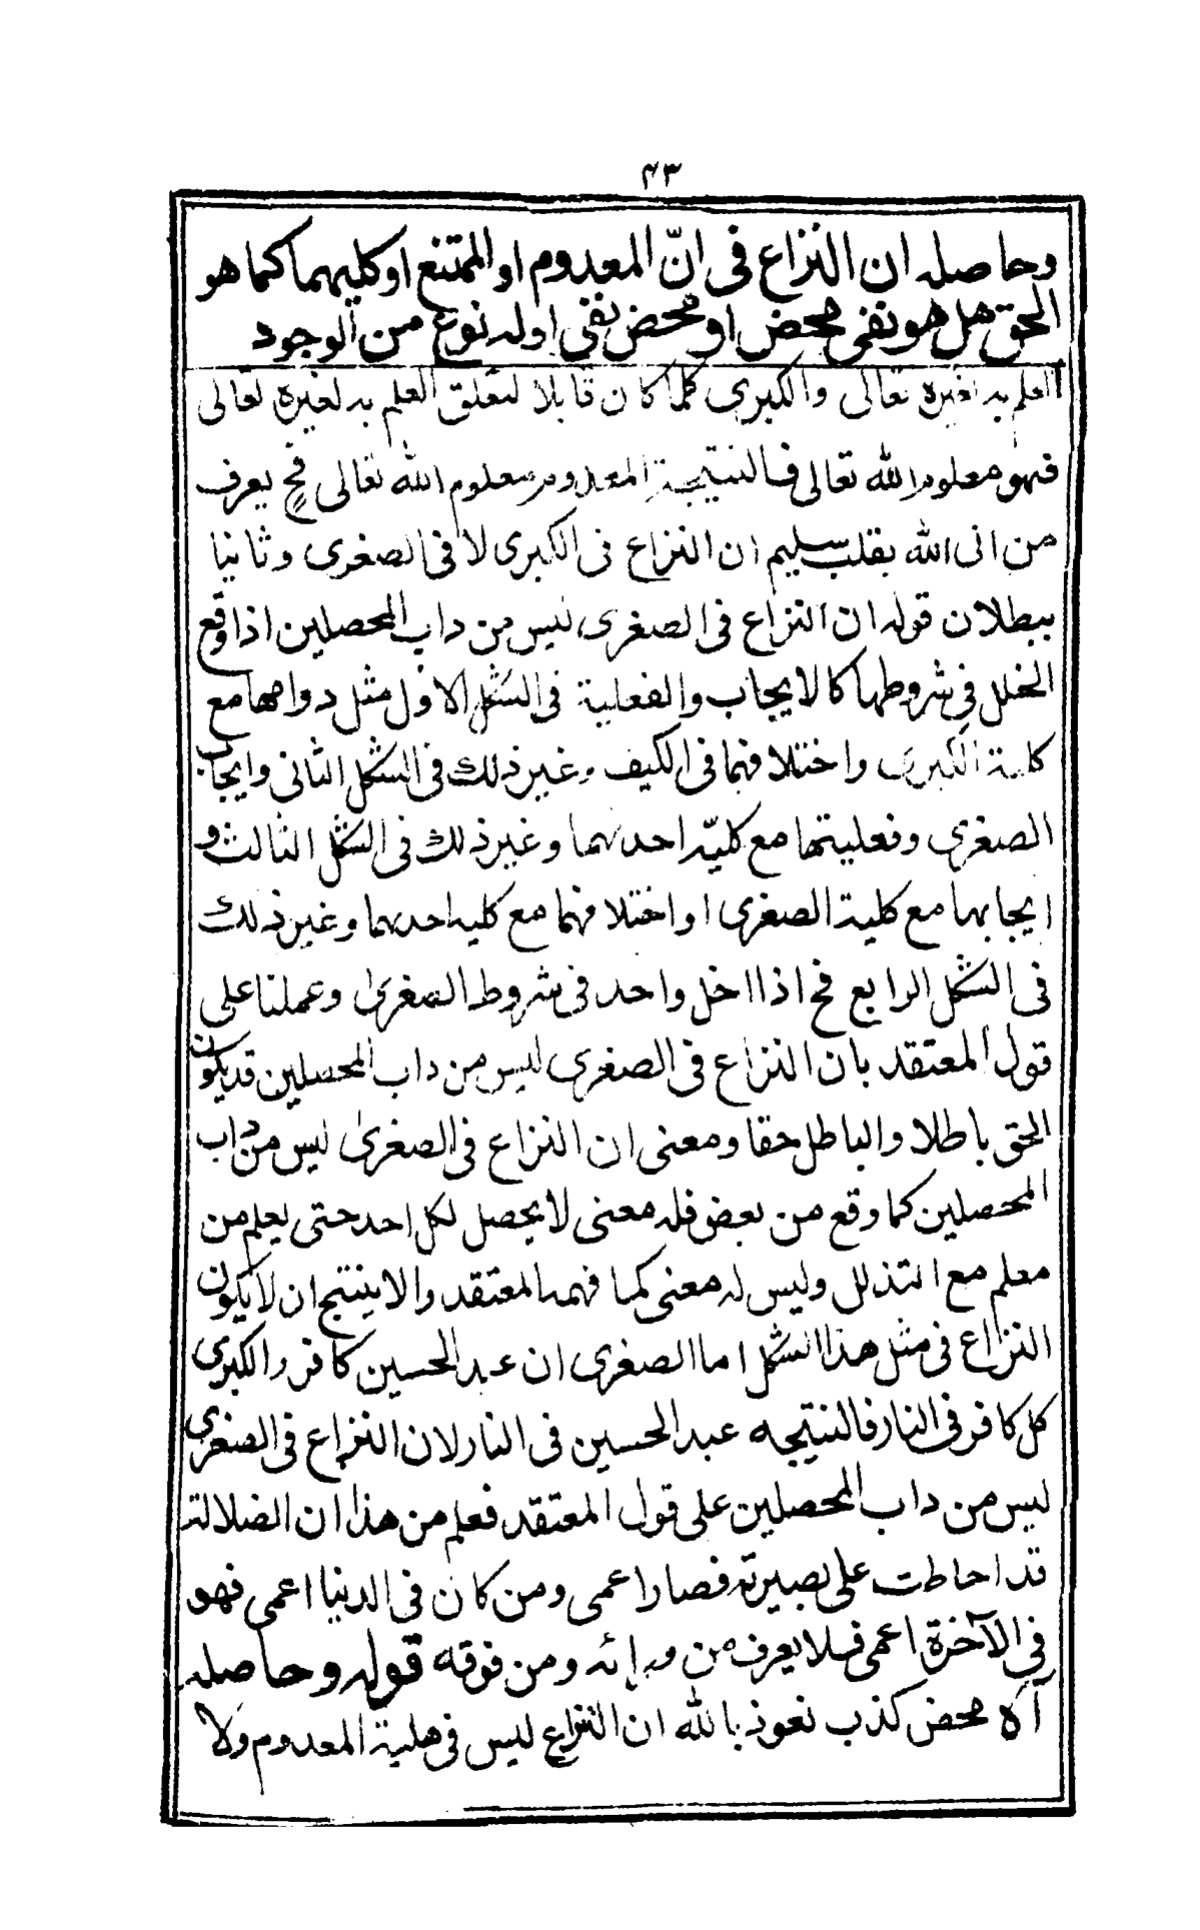 ۴۳
وحاصله ان النزاع فى انّ المعدوم او الممتنع او كليهما كما هو
الحق هل هو نفى محض او محض نفى او له نوع من الوجود
العلم به لغيره تعالى والكبرى كلما كان قابلا لتعلق العلم به لغيره تعالى
فهو معلوم الله تعالى فالنتيجة المعدوم معلوم الله تعالى فح يعرف
من اتى الله بقلب سليم ان النزاع فى الكبرى لا فى الصغرى وثانيا
ببطلان قوله ان النزاع فى الصغرى ليس من داب المحصلين اذا وقع
الخلل فى شروطها كالايجاب والفعلية فى الشكل الاول مثل دوامها مع
كلية الكبرى واختلافهما فى الكيف وغير ذلك فى الشكل الثانى وايجاب
الصغرى وفعليتها مع كليّه احدىهما وغير ذلك فى الشكل الثالث و
ايجابهما مع كلية الصغرى او اختلافهما مع كليه احدىهما وغير ذلك
فى الشكل الرابع فح اذا اخل واحد فى شروط الصغرى وعملنا على
قول المعتقد بان النزاع فى الصغرى ليس من داب المحصلين قد يكون
الحق باطلا والباطل حقا ومعنى ان النزاع فى الصغرى ليس من داب
المحصلين كما وقع من بعض فله معنى لا يحصل لكل احد حتى يعلم من
معلم مع التذلل وليس له معنى كما فهمه المعتقد والا ينتج ان لا يكون
النزاع فى مثل هذا الشكل اما الصغرى ان عبد الحسين كافر والكبرى
كل كافر فى النار فالنتيجه عبد الحسين فى النار لان النزاع فى الصغرى
ليس من داب المحصلين على قول المعتقد فعلم من هذا ان الضلالة
قد احاطت على بصيرته فصار اعمى ومن كان فى الدنيا اعمى فهو
فى الآخرة اعمى فلا يعرف من ورائه ومن فوقه قوله وحاصله
آه محض كذب نعوذ بالله ان النزاع ليس فى هلية المعدوم ولا